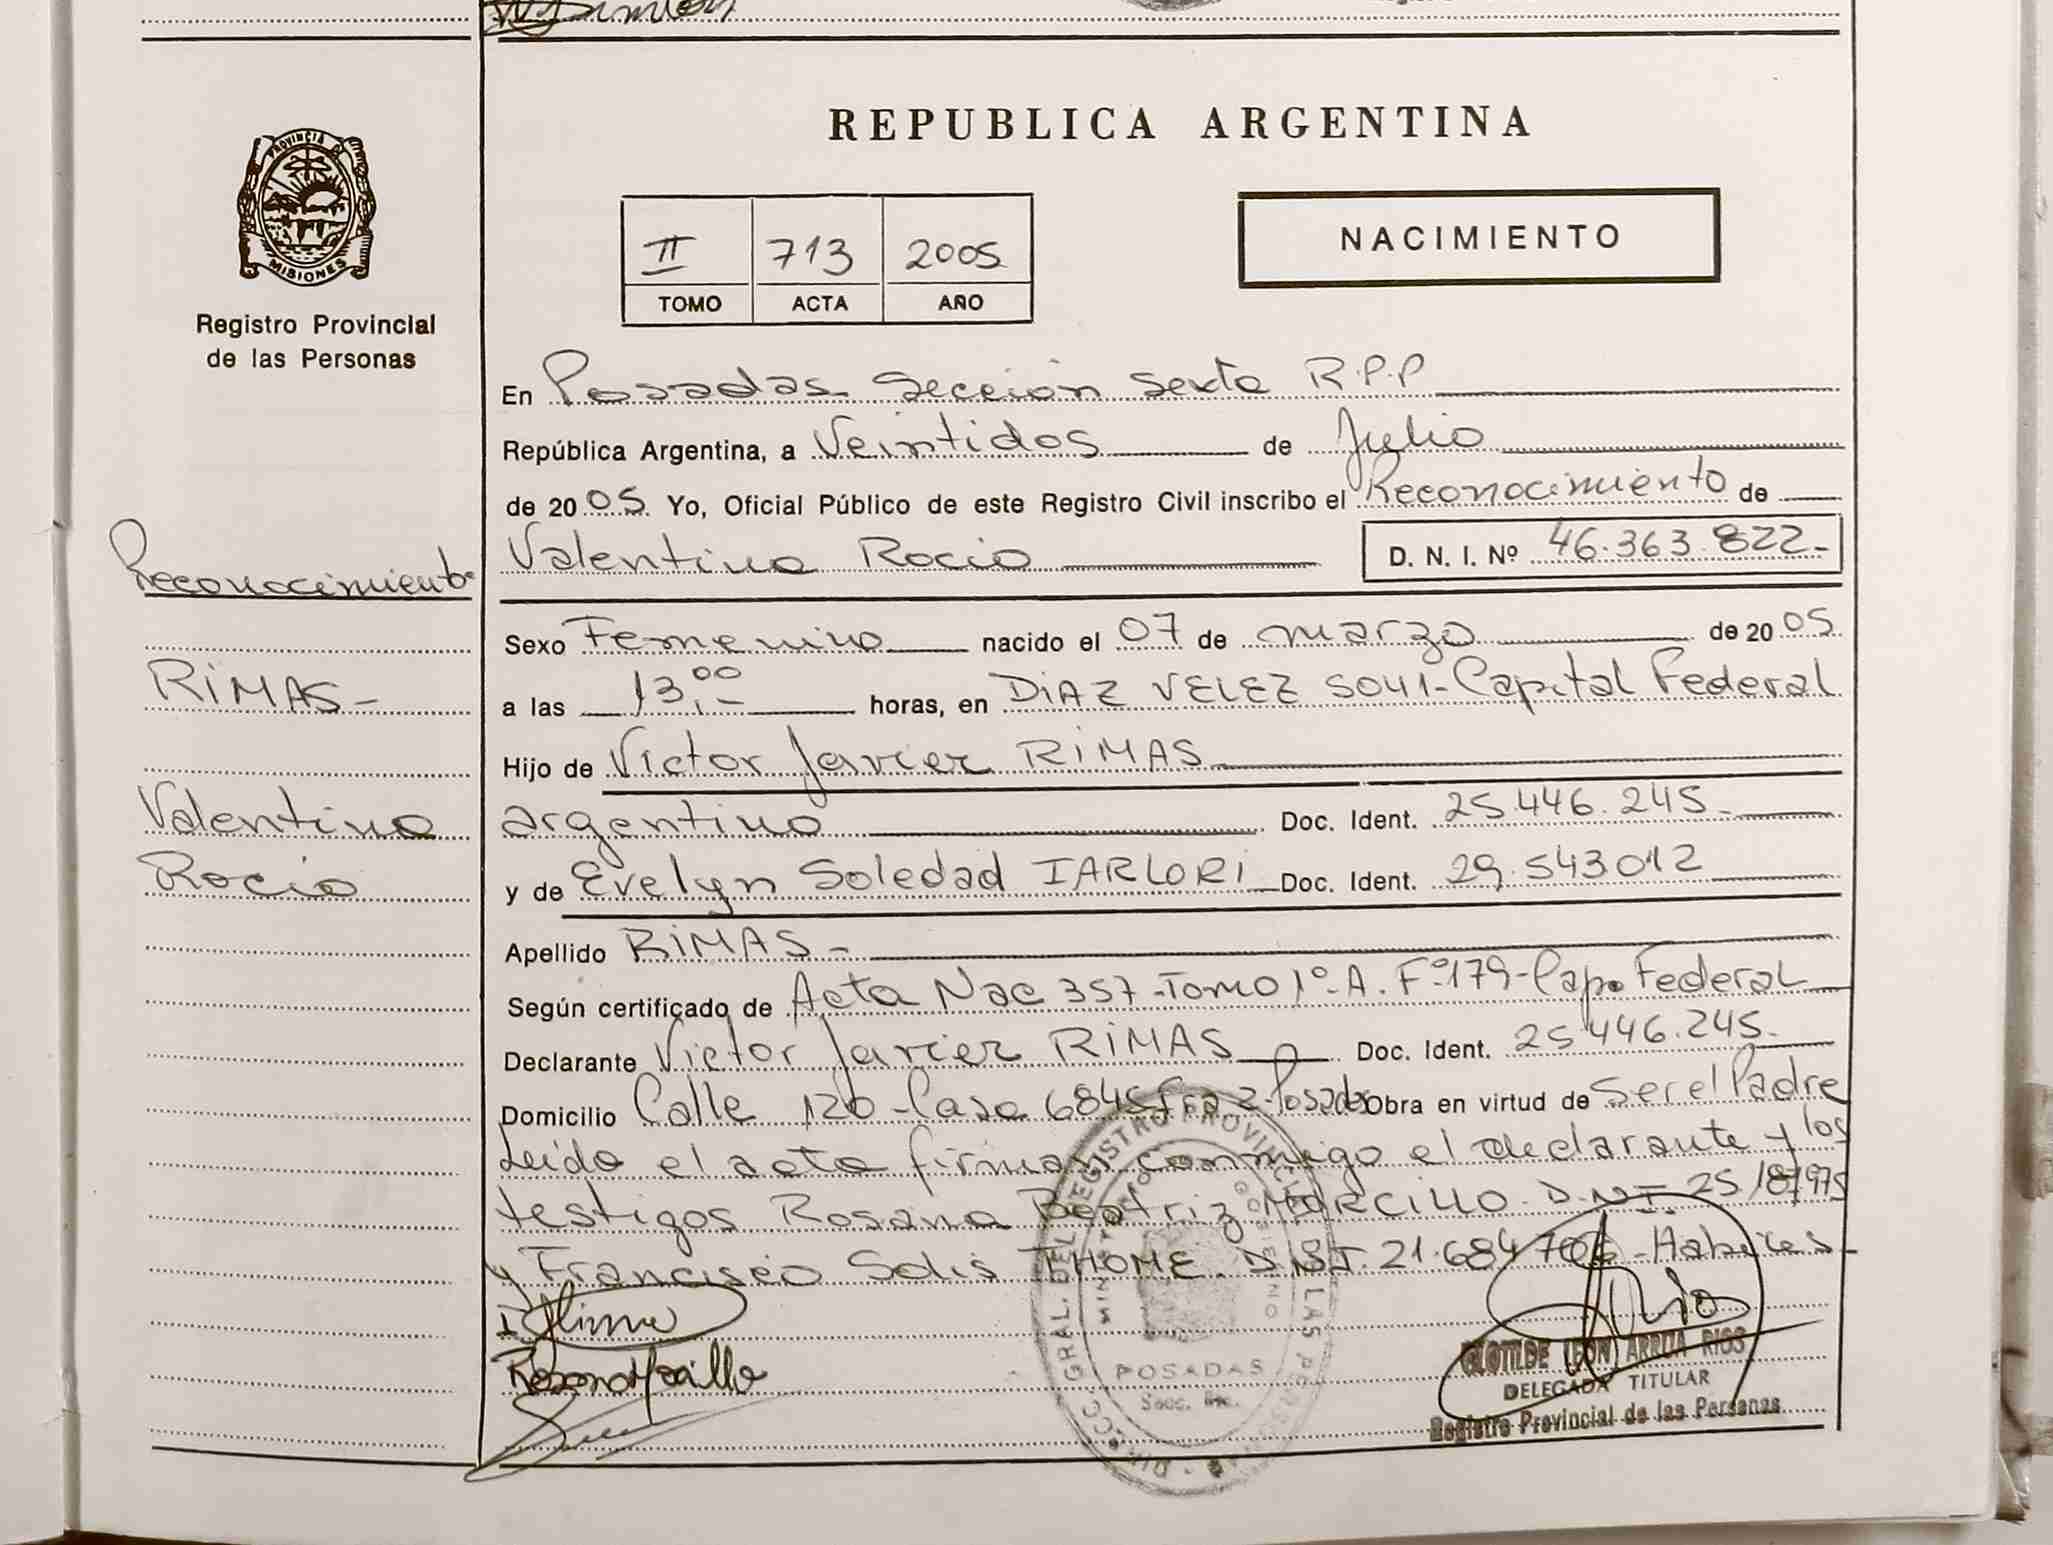 PROVINCIA DE
MISIONES
Registro Provincial
de las Personas
Reconocimiento
RIMAS-
Valentina
Rocio
REPUBLICA ARGENTINA
II 713 2005
TOMO ACTA AÑO
NACIMIENTO
En Posadas Sección Sexta R.P.P
República Argentina, a Veintidos de Julio
de 2005 Yo, Oficial Público de este Registro Civil inscribo el Reconocimiento de
Valentina Rocio D. N. I. Nº 46.363.822-
Sexo Femenino nacido el 07 de marzo de 2005
a las 13,00- horas, en DIAZ VELEZ 5041-Capital Federal
Hijo de Victor Javier RIMAS
argentino Doc. Ident. 25.446.245-
y de Evelyn Soledad IARLORI Doc. Ident. 29.543012
Apellido RIMAS-
Según certificado de Acta Nac 357-Tomo 1º-A. Fº179-Cap. Federal
Declarante Victor Javier RIMAS Doc. Ident. 25446.245-
Domicilio Calle 120-Casa 6845 Fra 2-Posadas Obra en virtud de Ser el Padre
Leida el acta firman conmigo el declarante y los
testigos Rosana Beatriz MORCILLO D.N.I. 25187975
y Francisco Solis THOME. D.N.I. 21.684706-Habiles-
Rosana Morcillo
DIRECC. GRAL. DEL REGISTRO PROVINCIAL DE LAS PERSONAS
MINISTERIO GOBIERNO
POSADAS
Secc.
CLOTILDE LEON ARRUA RIOS
DELEGADA TITULAR
Registro Provincial de las Personas